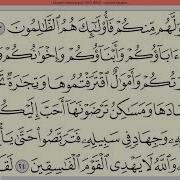 وَلَّهُم مِّنكُمْ فَأُوْلَٰٓئِكَ هُمُ ٱلظَّٰلِمُونَ
ءَابَآؤُكُمْ وَأَبْنَآؤُكُمْ وَإِخْوَٰنُكُمْ وَ
تُكُمْ وَأَمْوَٰلٌ ٱقْتَرَفْتُمُوهَا وَتِجَٰرَةٌ تَ
ادَهَا وَمَسَٰكِنُ تَرْضَوْنَهَآ أَحَبَّ إِلَيْكُ
وَجِهَادٍ فِي سَبِيلِهِۦ فَتَرَبَّصُوا۟ حَتَّىٰ يَأْ
وَٱللَّهُ لَا يَهْدِي ٱلْقَوْمَ ٱلْفَٰسِقِينَ ٢٤ لَقَ